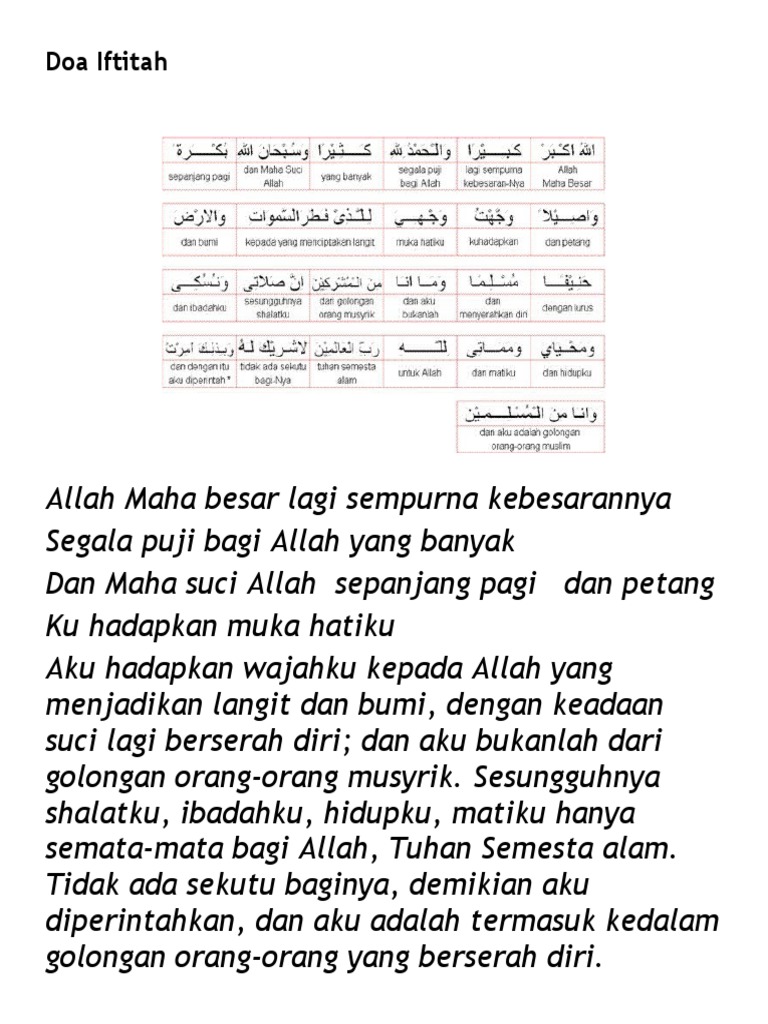 Doa Iftitah
اللهُ اَكْبَرْ كَبِـــيْرًا وَالْـحَمْدُ لِلهِ كَـــثِيْرًا وَسُبْحَانَ اللهِ بُكْـــرَةً
Allah Maha Besar lagi sempurna kebesaran-Nya segala puji bagi Allah yang banyak dan Maha Suci Allah sepanjang pagi
وَاَصِـيْلاً وَجَّهْتُ وَجْهِـــيَ لِلَّـذِىْ فَطَرَ السَّمٰوَاتِ وَالْاَرْضَ
dan petang kuhadapkan muka hatiku kepada yang menciptakan langit dan bumi
حَنِـيْفًـــا مُسْـلِـمًا وَمَـــا اَنَـا مِنَ الْـمُشْرِكِيْنَ اِنَّ صَلَاتِى وَنُسُكِـــى
dengan lurus dan menyerahkan diri dan aku bukanlah dari golongan orang musyrik sesungguhnya shalatku dan ibadahku
وَمَحْيَاي وَمَمَـاتِى لِلّٰـــهِ رَبِّ الْعَالَمِيْنَ لَاشَرِيْكَ لَـهُ وَبِـذٰلِكَ اُمِرْتُ
dan hidupku dan matiku untuk Allah tuhan semesta alam tidak ada sekutu bagi-Nya dan dengan itu aku diperintah*
وَاَنَـا مِنَ الْـمُسْـلِـــمِيْنَ
dan aku adalah golongan
orang-orang muslim
Allah Maha besar lagi sempurna kebesarannya
Segala puji bagi Allah yang banyak
Dan Maha suci Allah sepanjang pagi dan petang
Ku hadapkan muka hatiku
Aku hadapkan wajahku kepada Allah yang
menjadikan langit dan bumi, dengan keadaan
suci lagi berserah diri; dan aku bukanlah dari
golongan orang-orang musyrik. Sesungguhnya
shalatku, ibadahku, hidupku, matiku hanya
semata-mata bagi Allah, Tuhan Semesta alam.
Tidak ada sekutu baginya, demikian aku
diperintahkan, dan aku adalah termasuk kedalam
golongan orang-orang yang berserah diri.